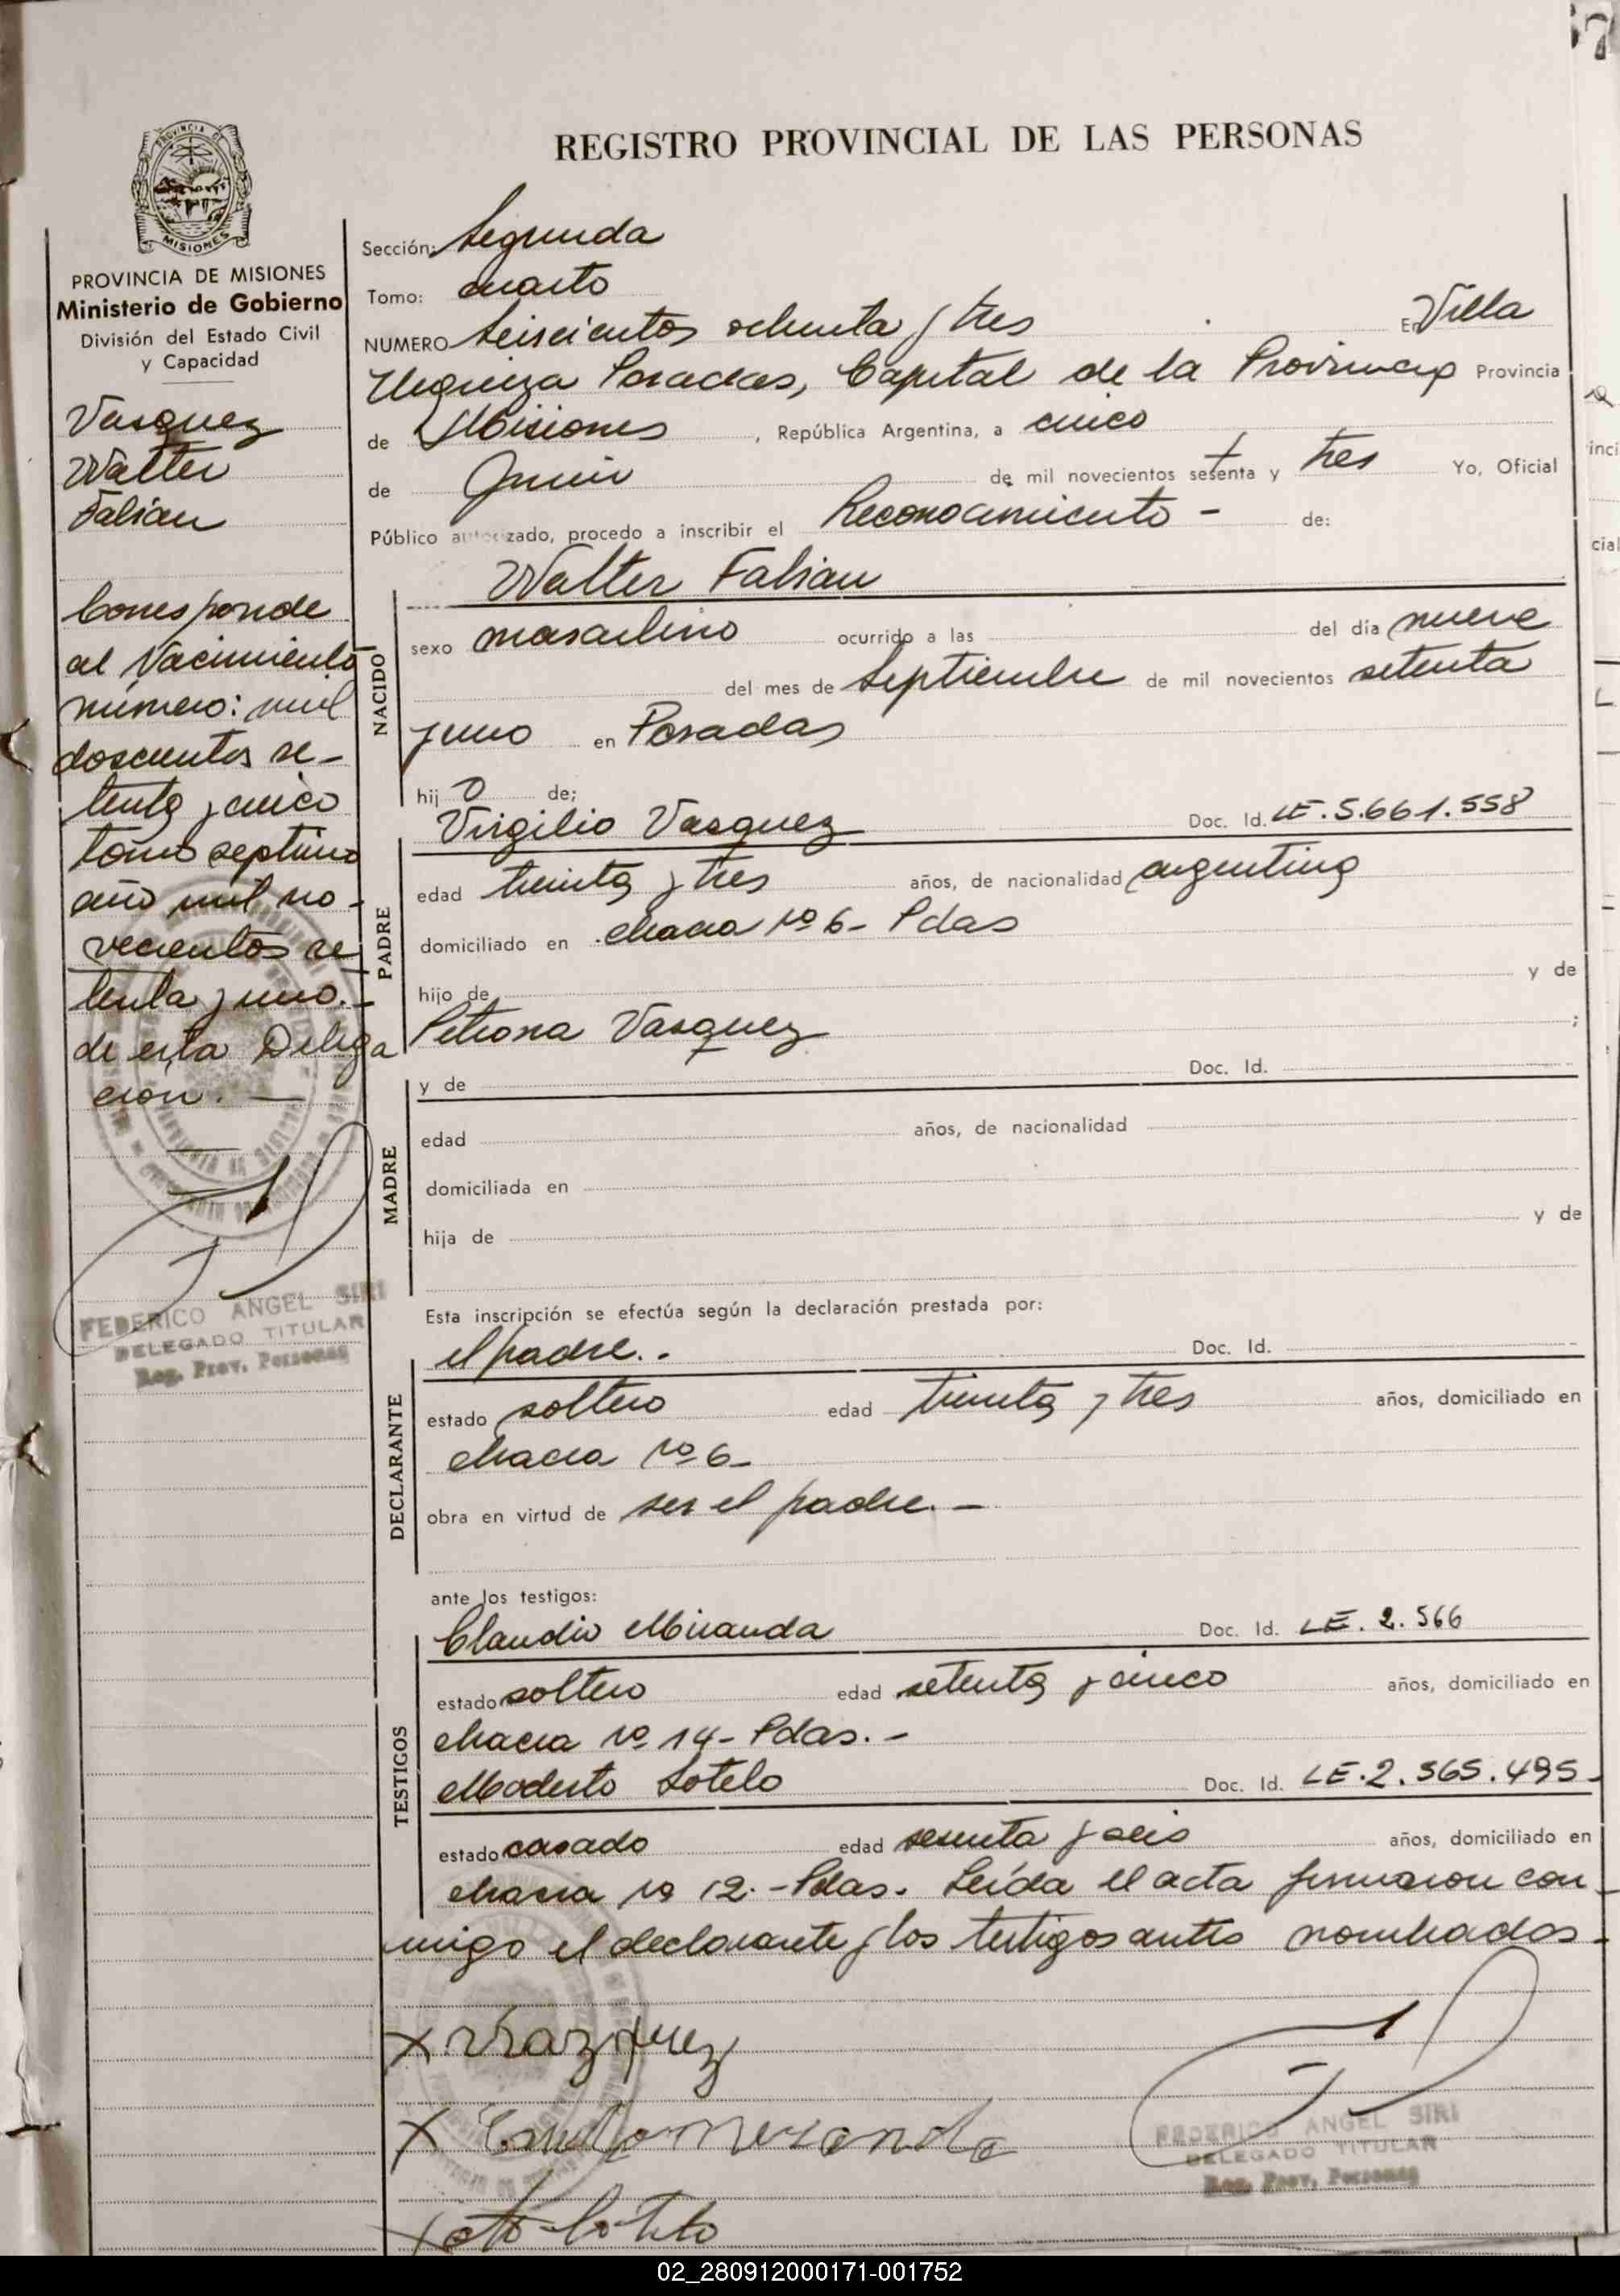 REGISTRO PROVINCIAL DE LAS PERSONAS
MISIONES
PROVINCIA DE MISIONES
Ministerio de Gobierno
División del Estado Civil
y Capacidad
Vasquez
Walter
Fabian
Corresponde
al Nacimiento
número: mil
doscientos se-
tenta y cinco
tomo septimo
año mil no-
vecientos se
tenta y uno.-
de esta Delega
cion.-
FEDERICO ANGEL SIRI
DELEGADO TITULAR
Reg. Prov. Personas
Sección: Segunda
Tomo: cuarto
NUMERO Seiscientos ochenta y tres En Villa
Urquiza Posadas, Capital de la Provincia Provincia
de Misiones, República Argentina, a cinco
de Junio de mil novecientos setenta y tres Yo, Oficial
Público autorizado, procedo a inscribir el Reconocimiento - de:
Walter Fabian
NACIDO
sexo masculino ocurrido a las del día nueve
del mes de Septiembre de mil novecientos setenta
y uno en Posadas
hij o de:
Virgilio Vasquez Doc. Id. LE.5.661.558
PADRE
edad treinta y tres años, de nacionalidad argentina
domiciliado en chacra Nº 6- Pdas
hijo de y de
Petrona Vasquez ;
y de Doc. Id.
MADRE
edad años, de nacionalidad
domiciliada en
hija de y de
Esta inscripción se efectúa según la declaración prestada por:
el padre.- Doc. Id.
DECLARANTE
estado soltero edad treinta y tres años, domiciliado en
chacra Nº 6-
obra en virtud de ser el padre.-
ante los testigos:
Claudio Miranda Doc. Id. LE. 2.566
TESTIGOS
estado soltero edad setenta y cinco años, domiciliado en
chacra Nº 14- Pdas.-
Modesto Sotelo Doc. Id. LE.2.365.495-
estado casado edad sesenta y seis años, domiciliado en
chacra Nº 12.-Pdas. Leída el acta firmaron con-
migo el declarante y los testigos antes nombrados-
x Vazquez
FEDERICO ANGEL SIRI
DELEGADO TITULAR
Reg. Prov. Personas
02_280912000171-001752